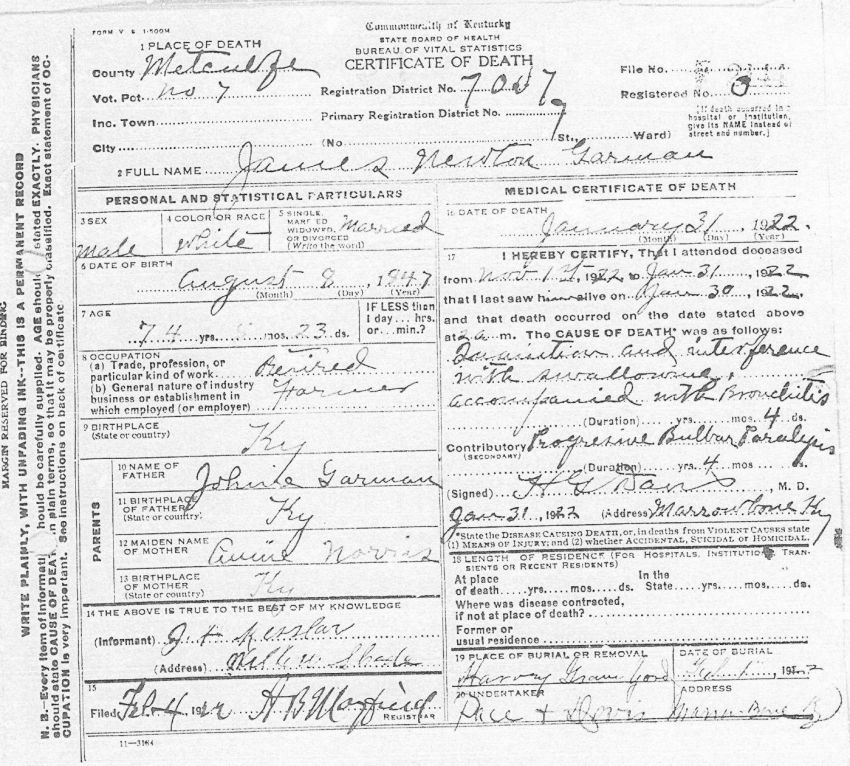 FORM V S 1-500M
Commonwealth of Kentucky
STATE BOARD OF HEALTH
BUREAU OF VITAL STATISTICS
CERTIFICATE OF DEATH
1 PLACE OF DEATH
County Metcalfe
Vot. Pct. No 7
Inc. Town
City
Registration District No.
Primary Registration District No.
(No St., Ward)
File No.
Registered No. 3
[If death occurred in a
hospital or institution,
give its NAME instead of
street and number.]
2 FULL NAME James Newton Garman
PERSONAL AND STATISTICAL PARTICULARS
3 SEX
Male
4 COLOR OR RACE
White
5 SINGLE,
MARRIED
WIDOWED,
OR DIVORCED
(Write the word)
Married
6 DATE OF BIRTH
August 8, 1847
(Month) (Day) (Year)
7 AGE
74 yrs. mos. 23 ds.
IF LESS than
1 day... hrs.
or... min.?
8 OCCUPATION
(a) Trade, profession, or
particular kind of work Retired
(b) General nature of industry
business or establishment in
which employed (or employer) Farmer
9 BIRTHPLACE
(State or country) Ky
PARENTS
10 NAME OF
FATHER Johnie Garman
11 BIRTHPLACE
OF FATHER
(State or country) Ky
12 MAIDEN NAME
OF MOTHER Norris
13 BIRTHPLACE
OF MOTHER
(State or country) Ky
14 THE ABOVE IS TRUE TO THE BEST OF MY KNOWLEDGE
(Informant)
(Address) Willow Shade
15
Filed Feb 4 1922 H B
REGISTRAR
11-3184
MEDICAL CERTIFICATE OF DEATH
16 DATE OF DEATH
January 31, 1922.
(Month) (Day) (Year)
17 I HEREBY CERTIFY, That I attended deceased
from Nov 1st, 1922 to Jan 31, 1922
that I last saw him alive on Jan 30, 1922,
and that death occurred on the date stated above
at 2 a m. The CAUSE OF DEATH* was as follows:
Inanition and interference
with swallowing,
accompanied with Bronchitis
(Duration) yrs. mos. 4 ds.
Contributory Progresive Bulbar Paralysis
(SECONDARY)
(Duration) yrs. 4 mos ds.
(Signed) H G Davis, M. D.
Jan 31, 1922 (Address) Marrowbone Ky
*State the DISEASE CAUSING DEATH, or, in deaths from VIOLENT CAUSES state
(1) MEANS OF INJURY; and (2) whether ACCIDENTAL, SUICIDAL OR HOMICIDAL.
18 LENGTH OF RESIDENCE (FOR HOSPITALS, INSTITUTIONS TRAN-
SIENTS OR RECENT RESIDENTS)
At place
of death yrs. mos. ds.
In the
State yrs. mos. ds.
Where was disease contracted,
if not at place of death?
Former or
usual residence
19 PLACE OF BURIAL OR REMOVAL
Harvey Grave Yard
DATE OF BURIAL
Feb 1 1922
20 UNDERTAKER
Pace + Davis
ADDRESS
Marrow Bone Ky
MARGIN RESERVED FOR BINDING
WRITE PLAINLY, WITH UNFADING INK-THIS IS A PERMANENT RECORD
N. B.-Every item of informati hould be carefully supplied. AGE shoul stated EXACTLY. PHYSICIANS
should state CAUSE OF DEAT n plain terms, so that it may be properly classified. Exact statement of OC-
CUPATION is very important. See instructions on back of certificate